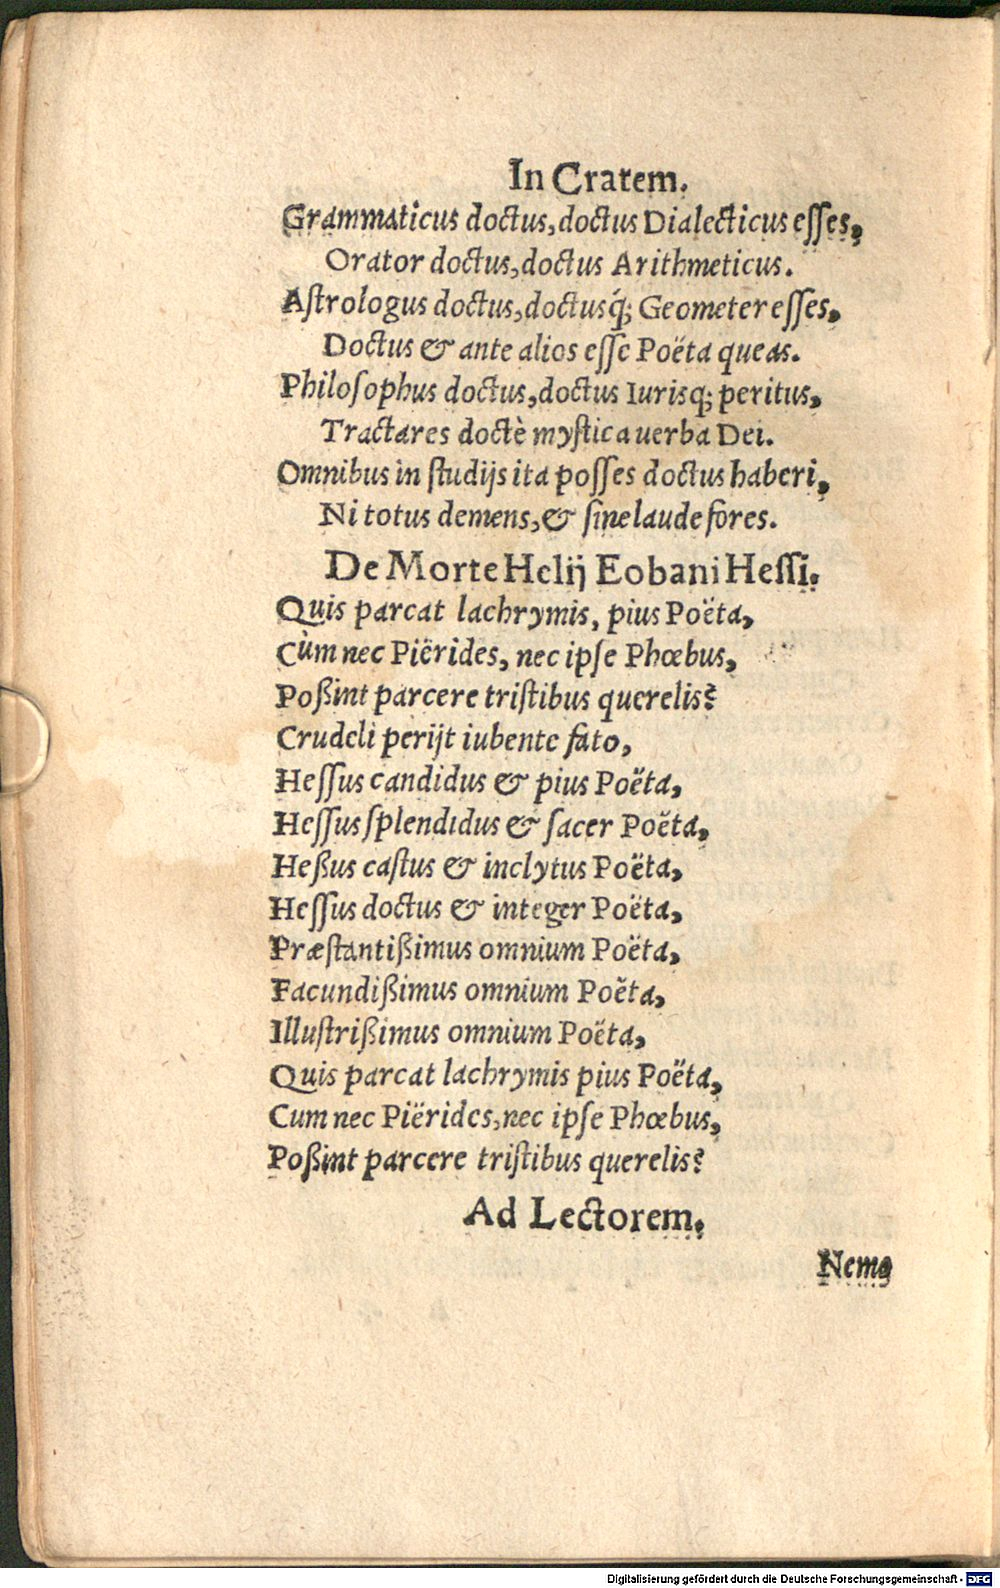 In Cratem.
Grammaticus doctus, doctus Dialecticus eſſes,
Orator doctus, doctus Arithmeticus.
Aſtrologus doctus, doctusq́; Geometer eſſes,
Doctus & ante alios eſſe Poëta queas.
Philoſophus doctus, doctus Iurisq; peritus,
Tractares doctè myſtica uerba Dei.
Omnibus in ſtudijs ita poſſes doctus haberi,
Ni totus demens, & ſine laude fores.
De Morte Helij Eobani Heſſi.
Quis parcat lachrymis, pius Poëta,
Cùm nec Piërides, nec ipſe Phœbus,
Poßint parcere triſtibus querelis?
Crudeli perijt iubente fato,
Heſſus candidus & pius Poëta,
Heſſus ſplendidus & ſacer Poëta,
Heßus caſtus & inclytus Poëta,
Heſſus doctus & integer Poëta,
Præſtantißimus omnium Poëta,
Facundißimus omnium Poëta,
Illuſtrißimus omnium Poëta,
Quis parcat lachrymis pius Poëta,
Cum nec Piërides, nec ipſe Phœbus,
Poßint parcere triſtibus querelis?
Ad Lectorem.
Nemo
Digitalisierung gefördert durch die Deutsche Forschungsgemeinschaft - DFG